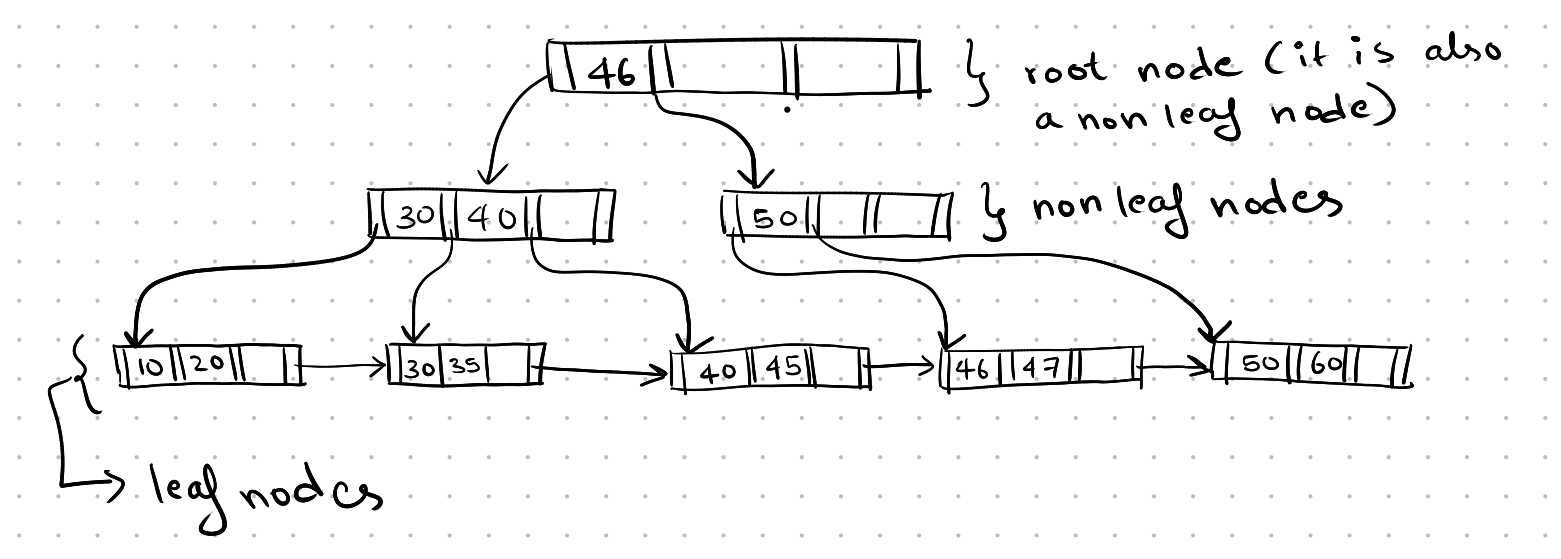 46
root node (it is also
a non leaf node)
30 40
50
non leaf nodes
10 20
30 35
40 45
46 47
50 60
leaf nodes